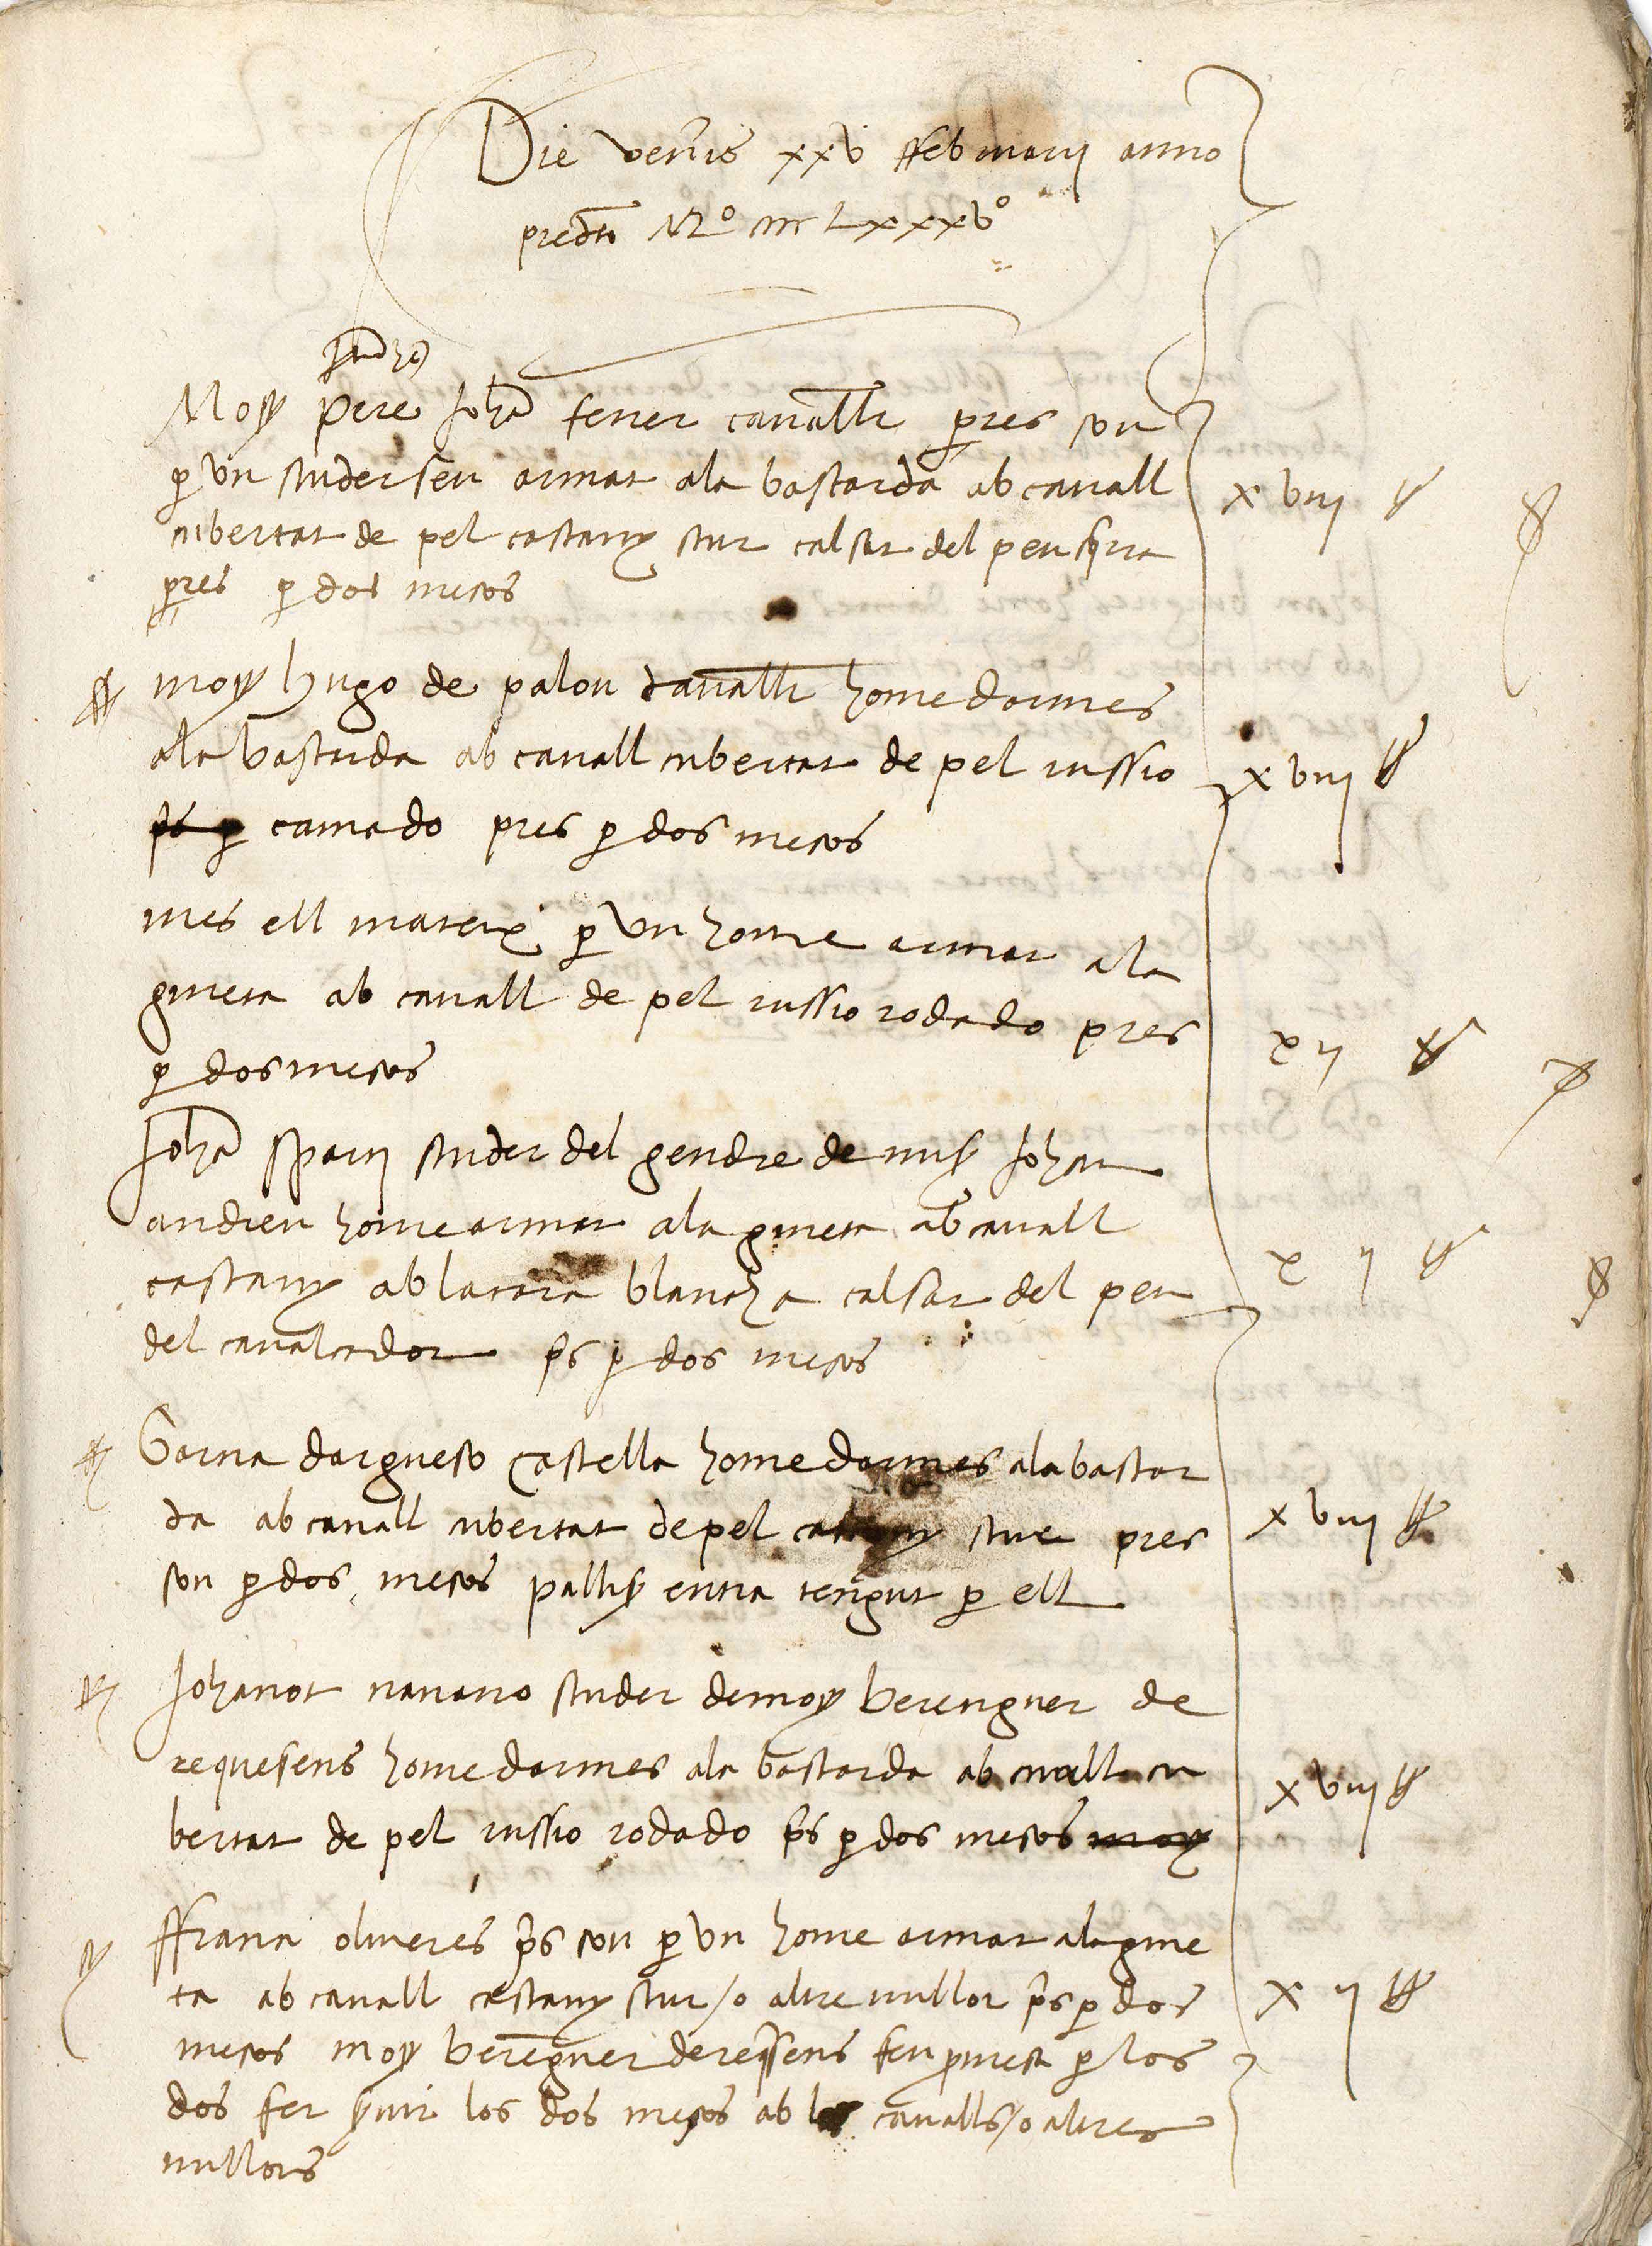 Die veneris xxv ffebruarij anno
predicto Mº cccc Lxxxvº
Mossen Pere Joha ferrer cavaller pres sou
per un scuder seu armat ala bastarda ab cavall
cubertat de pel castany scur calsat del peu squerra
pres per dos mesos
xviij ll
mossen hugo de palou cavaller home darmes
ala bastarda ab cavall cubertat de pel russio
camado pres per dos mesos
xviij ll
mes ell mateix per un home armat ala
gineta ab cavall de pel russio rodado pres
per dos mesos
xij ll
Joha scuder del gendre de misser Johan
andreu home armat ala gineta ab cavall
castany ab la cara blancha calsat del peu
del cavalcador pres per dos mesos
x ij ll
Garcia dargueso castella home darmes ala bastar
da ab cavall cubertat de pel castany scur pres
sou per dos mesos entra tengut per ell
xviij ll
Johanot navarro scuder de mossen berenguer de
requesens home darmes ala bastarda ab cavall cu
bertat de pel russio rodado pres per dos mesos mossen
xviij ll
ffrancia oliveres pres sou per un home armat ala gine
ta ab cavall castany scur / o altre millor pres per dos
mesos mossen berenguer de requesens feu promesa per los
dos fer servir los dos mesos ab los cavalls / o altres
millors
x ij ll